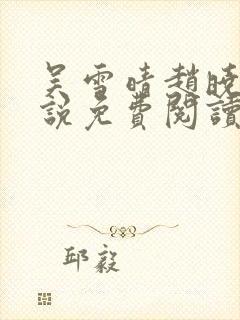 吴雪晴趙晓
說免費閱讀
邱毅